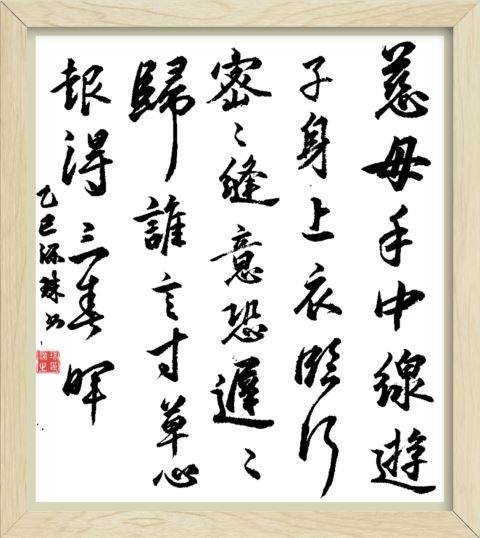 慈母手中線遊
子身上衣臨行
密〻縫意恐遲〻
歸誰言寸草心
報得三春暉
乙巳